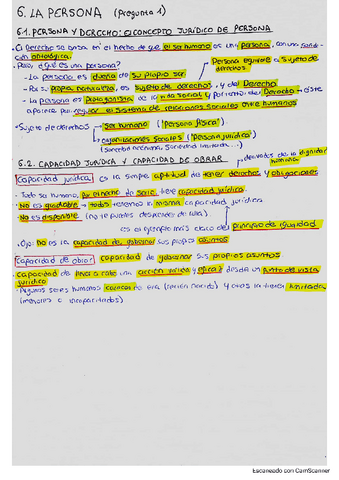 6. LA PERSONA (Pregunta 1)
6.1. PERSONA Y DERECHO: EL CONCEPTO JURÍDICO DE PERSONA
• El derecho se basa en el hecho de que el ser humano es una persona, con una
ontológica.
• Pero, ¿qué es una persona?
Persona equivale a sujeto de
derechos.
- La persona es dueña de su propio ser
- Por su propia naturaleza, es sujeto de derechos, y del Derecho
- La persona es protagonista de la vida social y por tanto del Derecho → éste
aparece para regular el sistema de relaciones sociales entre humanos
• Sujeto de derechos
→ ser humano ("persona física")
→ organizaciones sociales ("persona jurídica")
(sociedad anónima, sociedad limitada...)
6.2. CAPACIDAD JURÍDICA Y CAPACIDAD DE OBRAR
→ derivados de la dignidad
humana
Capacidad jurídica: es la simple aptitud de tener derechos y obligaciones
- Todo ser humano, por el hecho de serlo, tiene capacidad jurídica.
- No es graduable → todos tenemos la misma capacidad jurídica
- No es disponible (no te puedes desprender de ella).
→ es el ejemplo más claro del principio de igualdad
- Ojo: no es la capacidad de gobernar sus propios asuntos
Capacidad de obrar: capacidad de gobernar sus propios asuntos
- Capacidad de llevar a cabo una acción válida y eficaz desde un punto de vista
jurídico
- Algunos seres humanos carecen de ella (recién nacido) y otros la tienen limitada
(menores o incapacitados)
Escaneado con CamScanner